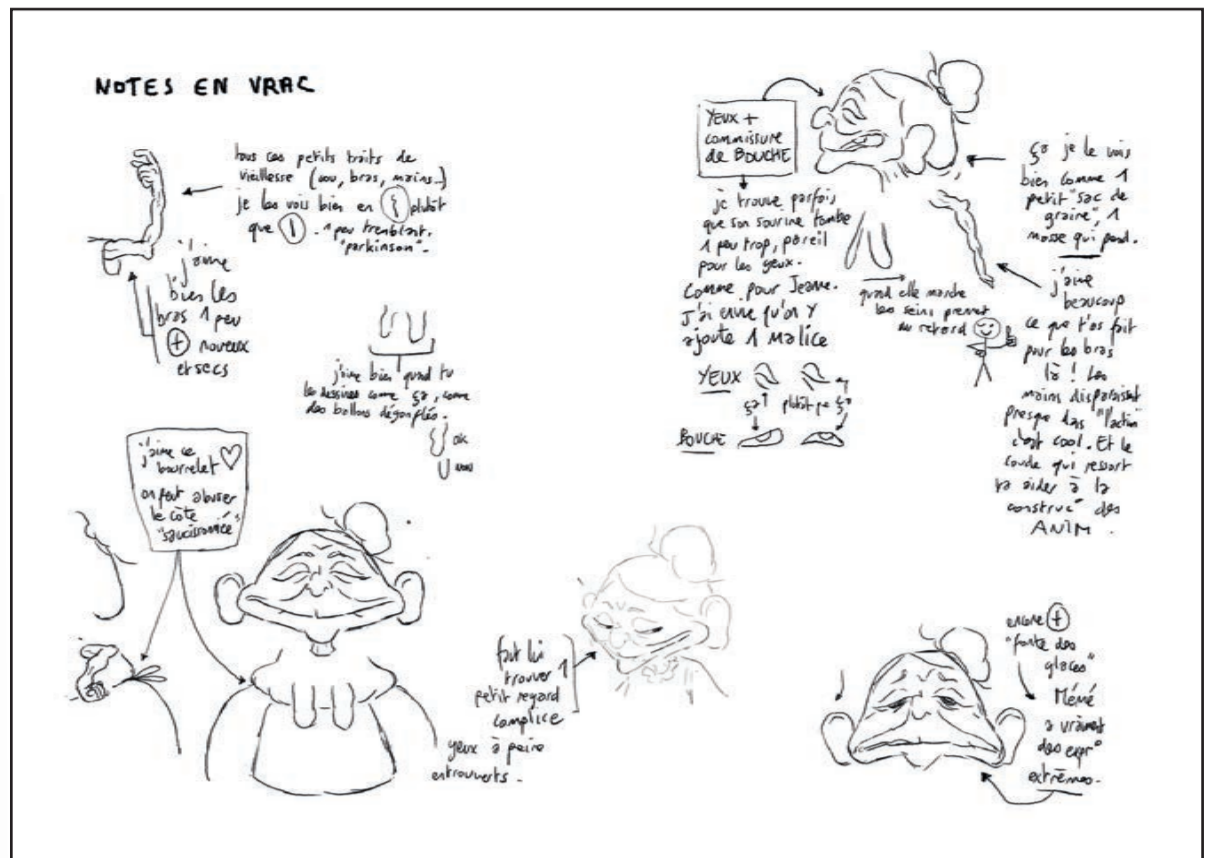 NOTES EN VRAC
tous ces petits traits de
vieillesse (cou, bras, mains..)
je les vois bien en { plutôt
que | . 1 peu tremblant.
"parkinson".
j'aime
bien les
bras 1 peu
+ noueux
et secs
j'aime bien quand tu
les dessines comme ça, comme
des ballons dégonflés.
ok
non
YEUX +
commissure
de BOUCHE
je trouve parfois
que son sourire tombe
1 peu trop, pareil
pour les yeux.
Comme pour Jeanne.
J'ai envie qu'on y
ajoute 1 malice
YEUX
ça
plutôt que ça
BOUCHE
quand elle marche
les seins prennent
du retard
ça je le vois
bien comme 1
petit "sac de
graine", 1
masse qui pend.
j'aime
beaucoup
ce que t'as fait
pour les bras
là ! Les
mains disparaissent
presque dans "l'action"
c'est cool. Et le
coude qui ressort
va aider à la
construc° des
ANIM.
j'aime ce
bourrelet ♡
on peut abuser
le côté
"saucissonné"
faut lui
trouver 1
petit regard
complice
yeux à peine
entrouverts.
encore +
"fonte des
glaces"
Mémé
a vraiment
des expr°
extrêmes.